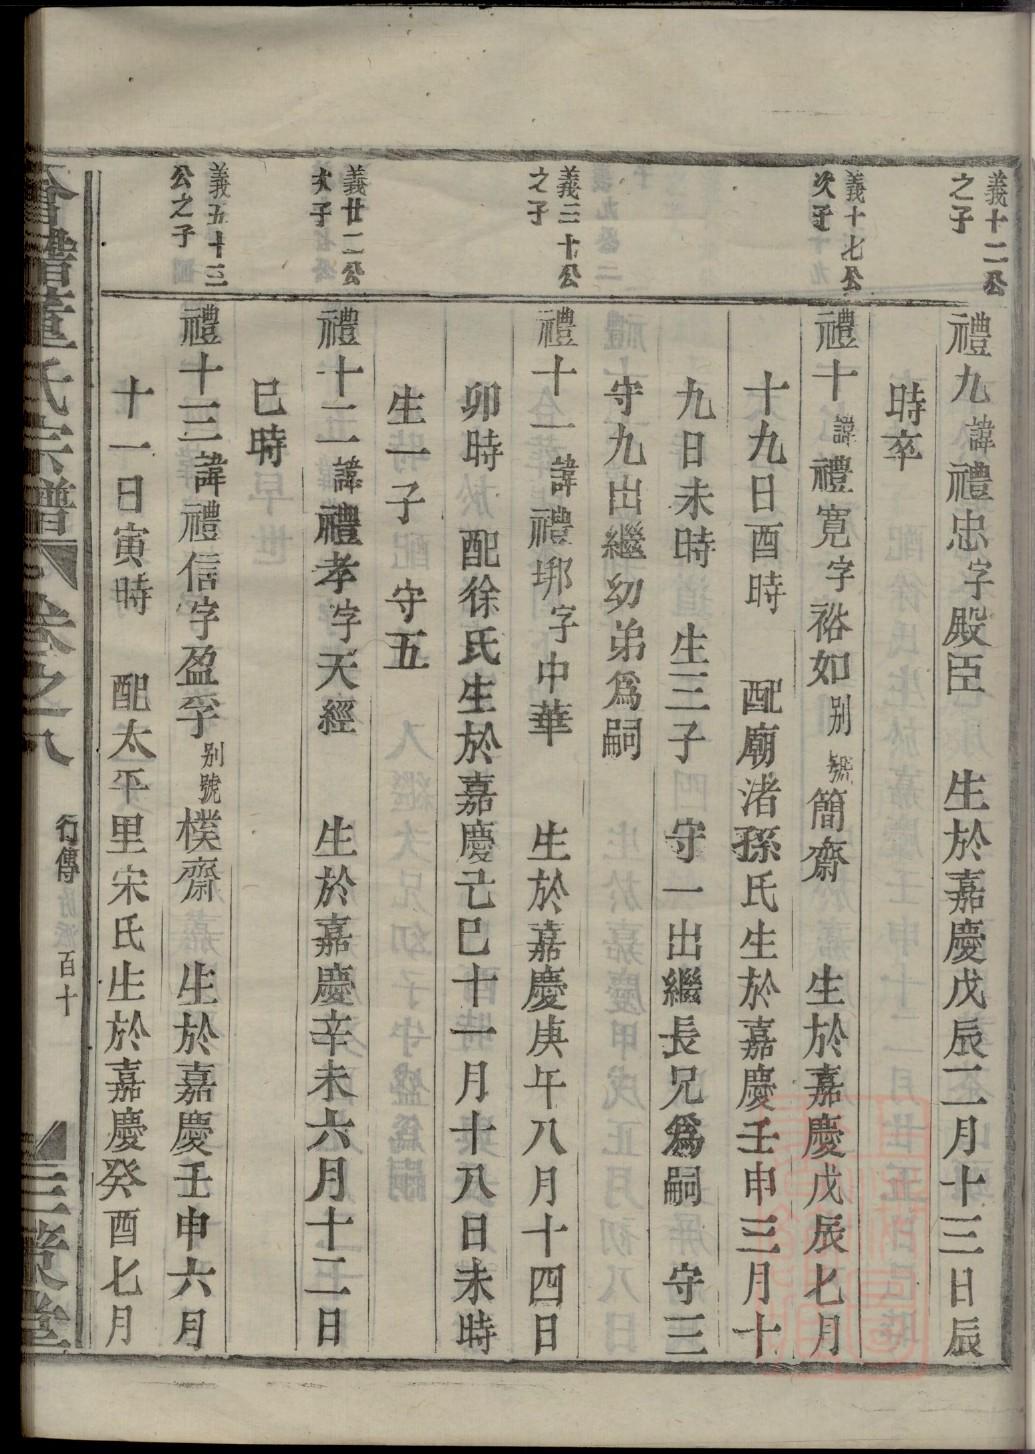 義十二公
之子
禮九諱禮忠字殿臣 生於嘉慶戊辰二月十三日辰
時卒
義十七公
次子
禮十諱禮寬字裕如别號簡齋 生於嘉慶戊辰七月
十九日酉時 配廟渚孫氏生於嘉慶壬申三月十
九日未時 生三子 守一出繼長兄爲嗣 守三
守九出繼幼弟爲嗣
義三十公
之子
禮十一諱禮邦字中華 生於嘉慶庚午八月十四日
卯時 配徐氏生於嘉慶己巳十一月十八日未時
生一子 守五
義廿二公
次子
禮十二諱禮孝字天經 生於嘉慶辛未六月十二日
巳時
義五十三
公之子
禮十三諱禮信字盈孚别號樸齋 生於嘉慶壬申六月
十一日寅時 配太平里宋氏生於嘉慶癸酉七月
董氏宗譜 卷之八 行傳 百十 三策堂